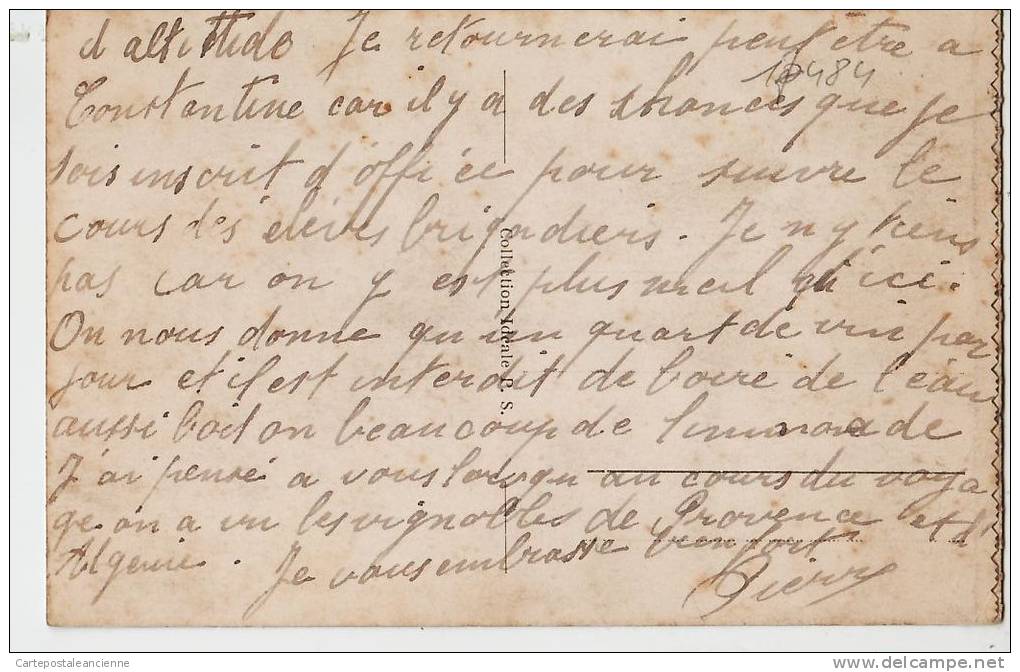 d altitude Je retournerai peut etre a
10484
Constantine car il y a des chances que je
sois inscrit d'office pour suivre le
cours des élèves brigadiers. Je n y tiens
pas car on y est plus mal qu'ici.
On nous donne qu un quart de vin par
jour et il est interdit de boire de l'eau
aussi boit on beaucoup de limonade
J'ai pensé a vous lorsqu au cours du voya
ge on a vu les vignobles de Provence et d'
Algerie. Je vous embrasse bien fort
Pierre
Collection Idéale P. S.
Cartepostaleancienne
www.delcampe.net